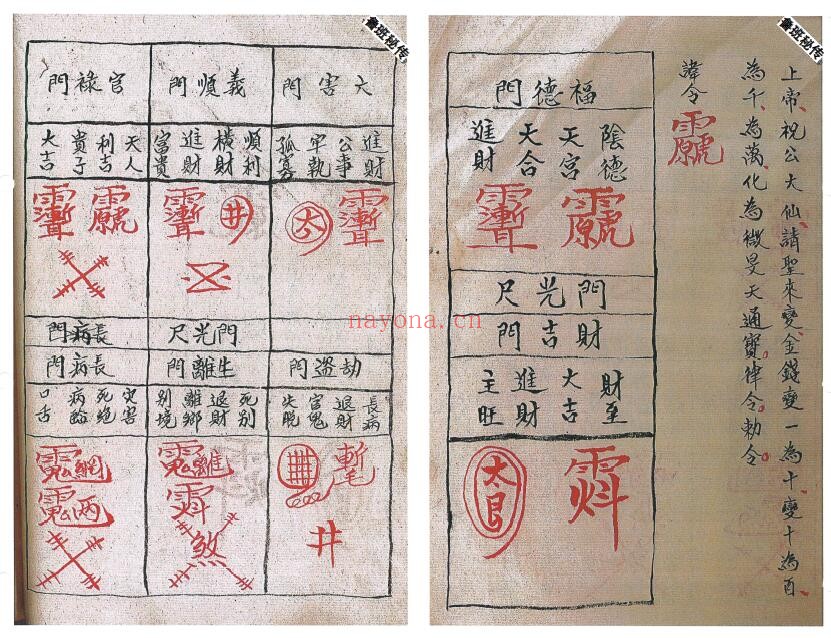 魯班秘传
上帝祝公大仙請聖來變金錢變一為十變十為百
為千為萬化為微旻天通寶律令勅令
諱令
福德門
陰德
天宮
天合
進財
門光尺
財吉門
財至
大吉
進財
主旺
魯班秘传
大害門
進財
公事
牢執
孤寡
太
義順門
順利
橫財
進財
富貴
井
官祿門
天人
利吉
貴子
大吉
門光尺
長病門
劫盜門
長病
退財
官鬼
失脫
井
生離門
死別
退財
離鄉
別境
煞
長病門
災害
死絕
口舌
nayona.cn